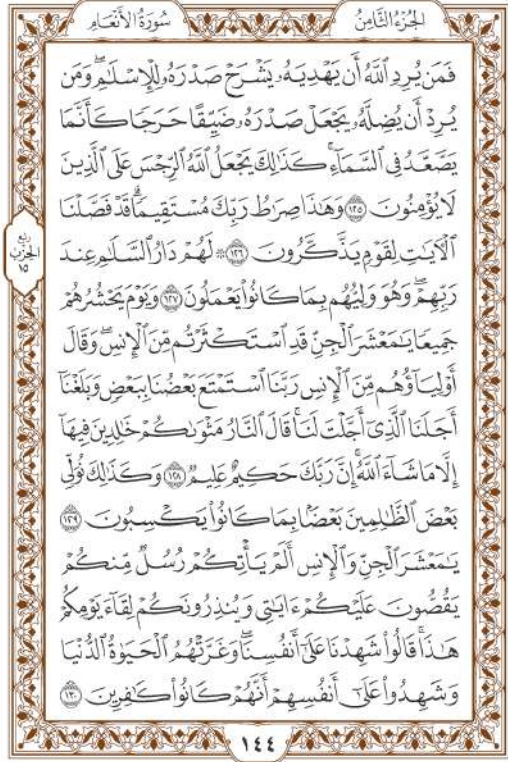 الجُزْءُ الثَّامِنُ
سُورَةُ الأَنْعَامِ
فَمَن يُرِدِ ٱللَّهُ أَن يَهْدِيَهُۥ يَشْرَحْ صَدْرَهُۥ لِلْإِسْلَٰمِۖ وَمَن
يُرِدْ أَن يُضِلَّهُۥ يَجْعَلْ صَدْرَهُۥ ضَيِّقًا حَرَجًا كَأَنَّمَا
يَصَّعَّدُ فِى ٱلسَّمَآءِۚ كَذَٰلِكَ يَجْعَلُ ٱللَّهُ ٱلرِّجْسَ عَلَى ٱلَّذِينَ
لَا يُؤْمِنُونَ ١٢٥ وَهَٰذَا صِرَٰطُ رَبِّكَ مُسْتَقِيمًاۗ قَدْ فَصَّلْنَا
ٱلْأٓيَٰتِ لِقَوْمٍ يَذَّكَّرُونَ ١٢٦ ۞ لَهُمْ دَارُ ٱلسَّلَٰمِ عِندَ
رَبِّهِمْۖ وَهُوَ وَلِيُّهُم بِمَا كَانُوا۟ يَعْمَلُونَ ١٢٧ وَيَوْمَ يَحْشُرُهُمْ
جَمِيعًا يَٰمَعْشَرَ ٱلْجِنِّ قَدِ ٱسْتَكْثَرْتُم مِّنَ ٱلْإِنسِۖ وَقَالَ
أَوْلِيَآؤُهُم مِّنَ ٱلْإِنسِ رَبَّنَا ٱسْتَمْتَعَ بَعْضُنَا بِبَعْضٍ وَبَلَغْنَآ
أَجَلَنَا ٱلَّذِىٓ أَجَّلْتَ لَنَاۚ قَالَ ٱلنَّارُ مَثْوَىٰكُمْ خَٰلِدِينَ فِيهَآ
إِلَّا مَا شَآءَ ٱللَّهُۗ إِنَّ رَبَّكَ حَكِيمٌ عَلِيمٌ ١٢٨ وَكَذَٰلِكَ نُوَلِّى
بَعْضَ ٱلظَّٰلِمِينَ بَعْضًۢا بِمَا كَانُوا۟ يَكْسِبُونَ ١٢٩
يَٰمَعْشَرَ ٱلْجِنِّ وَٱلْإِنسِ أَلَمْ يَأْتِكُمْ رُسُلٌ مِّنكُمْ
يَقُصُّونَ عَلَيْكُمْ ءَايَٰتِى وَيُنذِرُونَكُمْ لِقَآءَ يَوْمِكُمْ
هَٰذَاۚ قَالُوا۟ شَهِدْنَا عَلَىٰٓ أَنفُسِنَاۖ وَغَرَّتْهُمُ ٱلْحَيَوٰةُ ٱلدُّنْيَا
وَشَهِدُوا۟ عَلَىٰٓ أَنفُسِهِمْ أَنَّهُمْ كَانُوا۟ كَٰفِرِينَ ١٣٠
ربع
الحزب
١٥
١٤٤